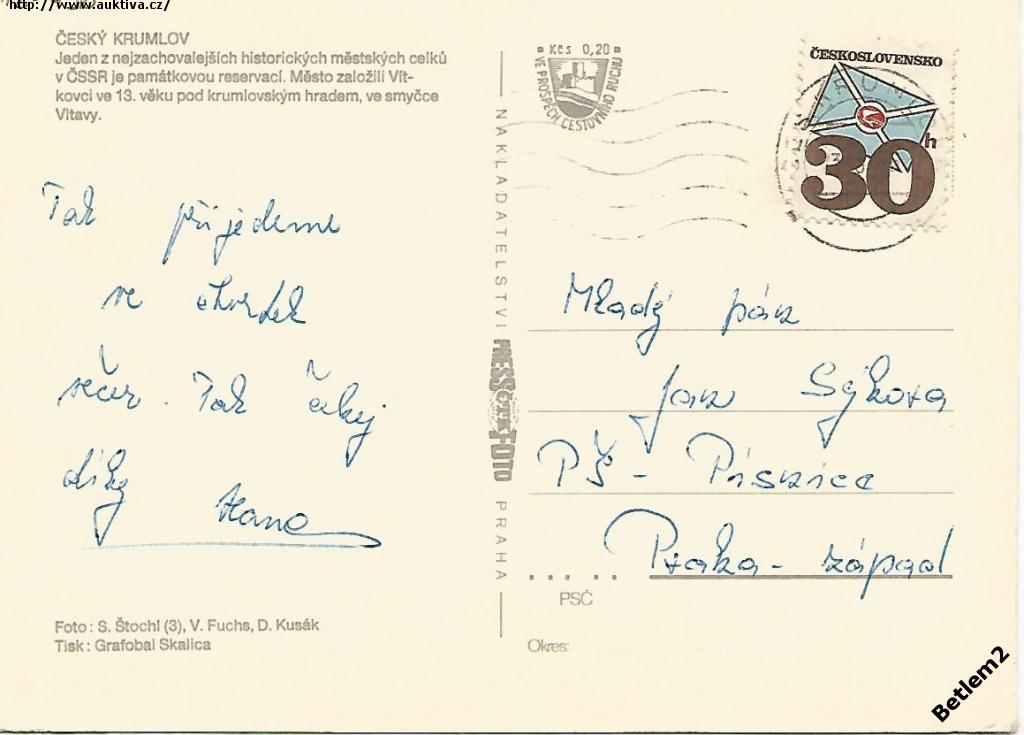 http://www.auktiva.cz/
ČESKÝ KRUMLOV
Jeden z nejzachovalejších historických městských celků
v ČSSR je památkovou reservací. Město založili Vít-
kovci ve 13. věku pod krumlovským hradem, ve smyčce
Vltavy.
Kčs 0,20
VE PROSPĚCH CESTOVNÍHO RUCHU
ČESKOSLOVENSKO
30h
Tak přijedeme
ve čtvrtek
večer. Tak čekej
díky Hana
NAKLADATELSTVÍ PRESSFOTO PRAHA
ČTK
Mladý pán
Jan Sýkora
PŠ - Písnice
Praha - západ
PSČ
Okres:
Foto: S. Štochl (3), V. Fuchs, D. Kusák
Tisk: Grafobal Skalica
Betlem2